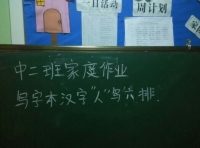 一日活动
周计划
中二班家庭作业
写字本汉字“人”写六排.